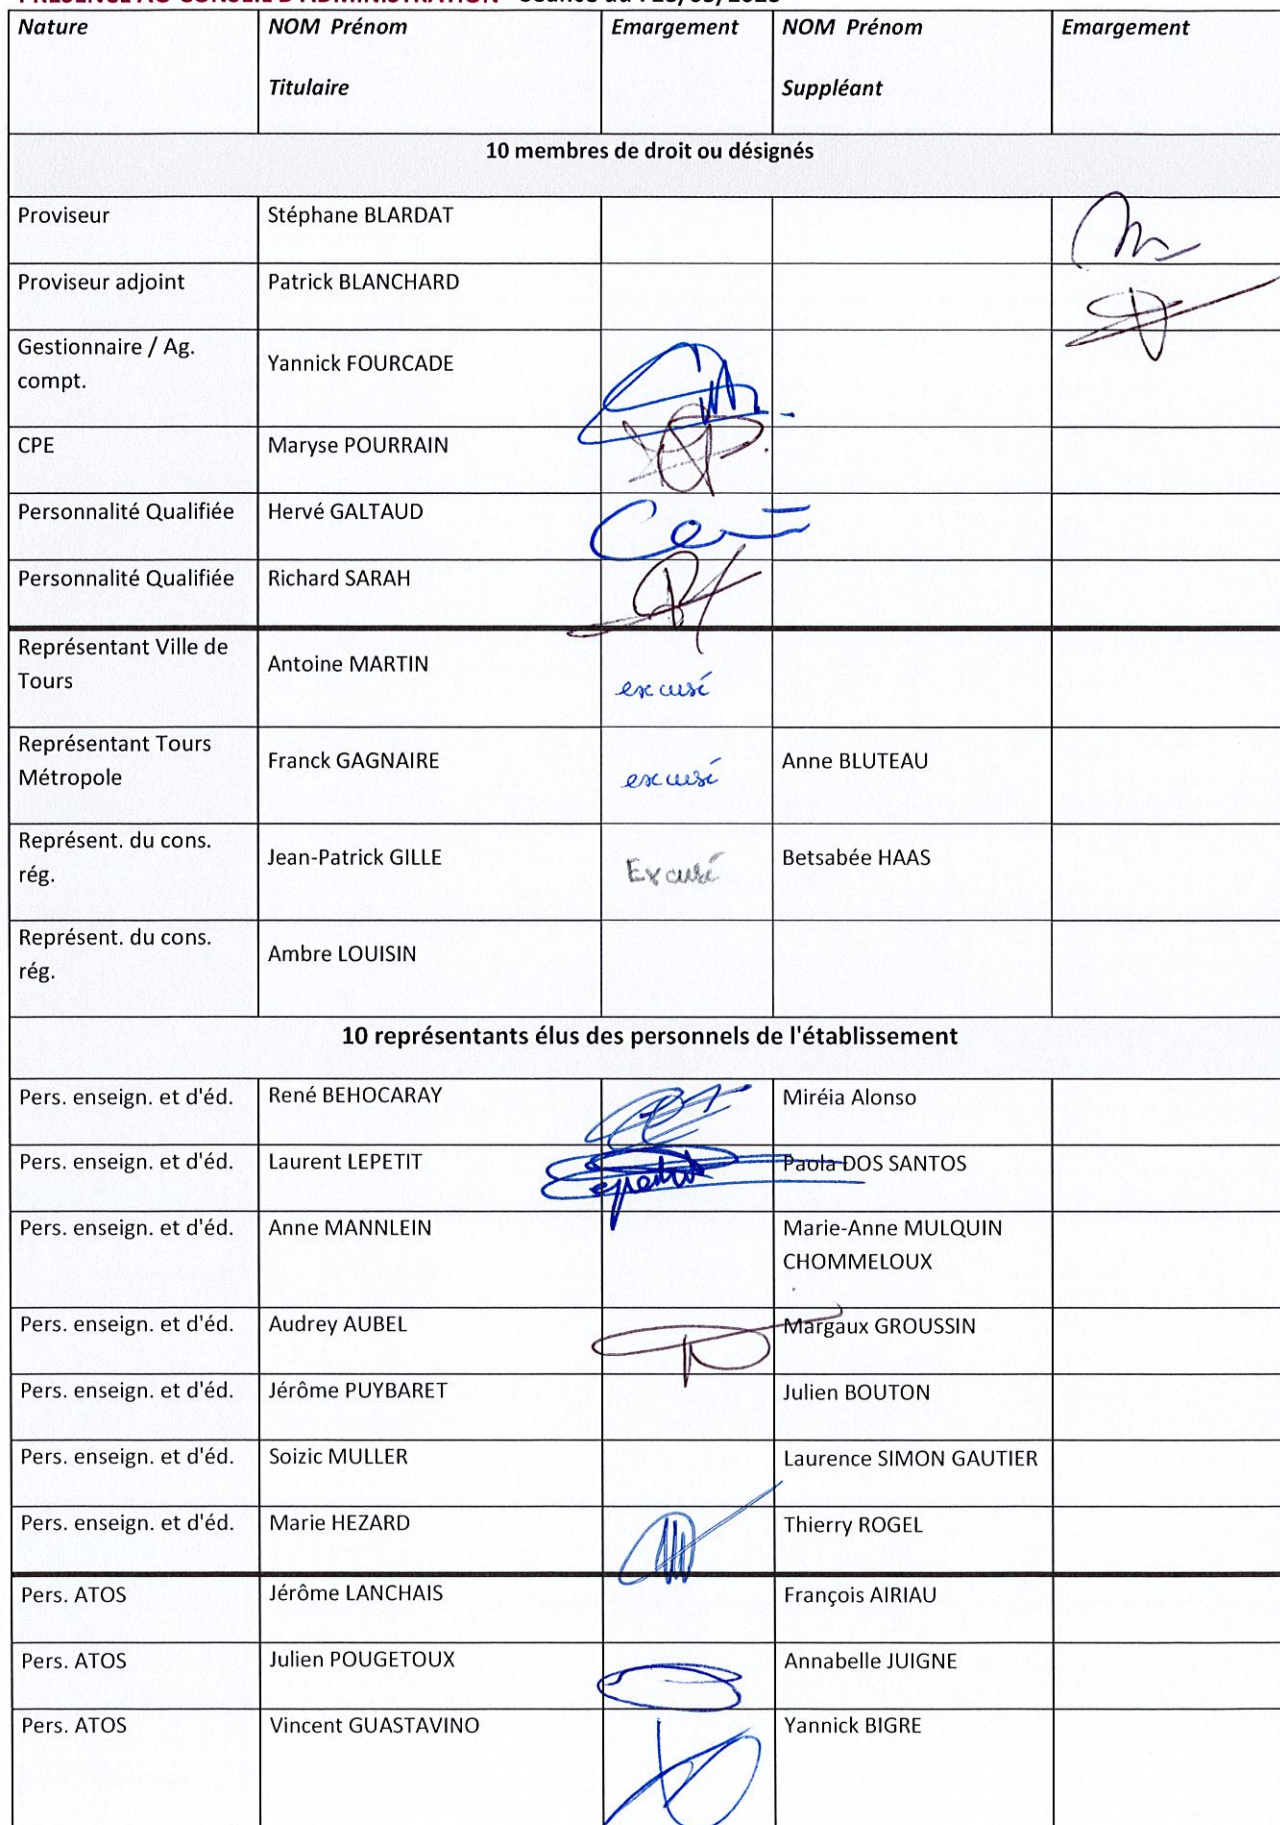 Nature NOM Prénom Emargement NOM Prénom Emargement
Titulaire Suppléant
10 membres de droit ou désignés
Proviseur Stéphane BLARDAT
Proviseur adjoint Patrick BLANCHARD
Gestionnaire / Ag.
compt.
Yannick FOURCADE
CPE Maryse POURRAIN
Personnalité Qualifiée Hervé GALTAUD
Personnalité Qualifiée Richard SARAH
Représentant Ville de
Tours
Antoine MARTIN excusé
Représentant Tours
Métropole
Franck GAGNAIRE excusé Anne BLUTEAU
Représent. du cons.
rég.
Jean-Patrick GILLE Excusé Betsabée HAAS
Représent. du cons.
rég.
Ambre LOUISIN
10 représentants élus des personnels de l'établissement
Pers. enseign. et d'éd. René BEHOCARAY Miréia Alonso
Pers. enseign. et d'éd. Laurent LEPETIT Paola DOS SANTOS
Pers. enseign. et d'éd. Anne MANNLEIN Marie-Anne MULQUIN
CHOMMELOUX
Pers. enseign. et d'éd. Audrey AUBEL Margaux GROUSSIN
Pers. enseign. et d'éd. Jérôme PUYBARET Julien BOUTON
Pers. enseign. et d'éd. Soizic MULLER Laurence SIMON GAUTIER
Pers. enseign. et d'éd. Marie HEZARD Thierry ROGEL
Pers. ATOS Jérôme LANCHAIS François AIRIAU
Pers. ATOS Julien POUGETOUX Annabelle JUIGNE
Pers. ATOS Vincent GUASTAVINO Yannick BIGRE